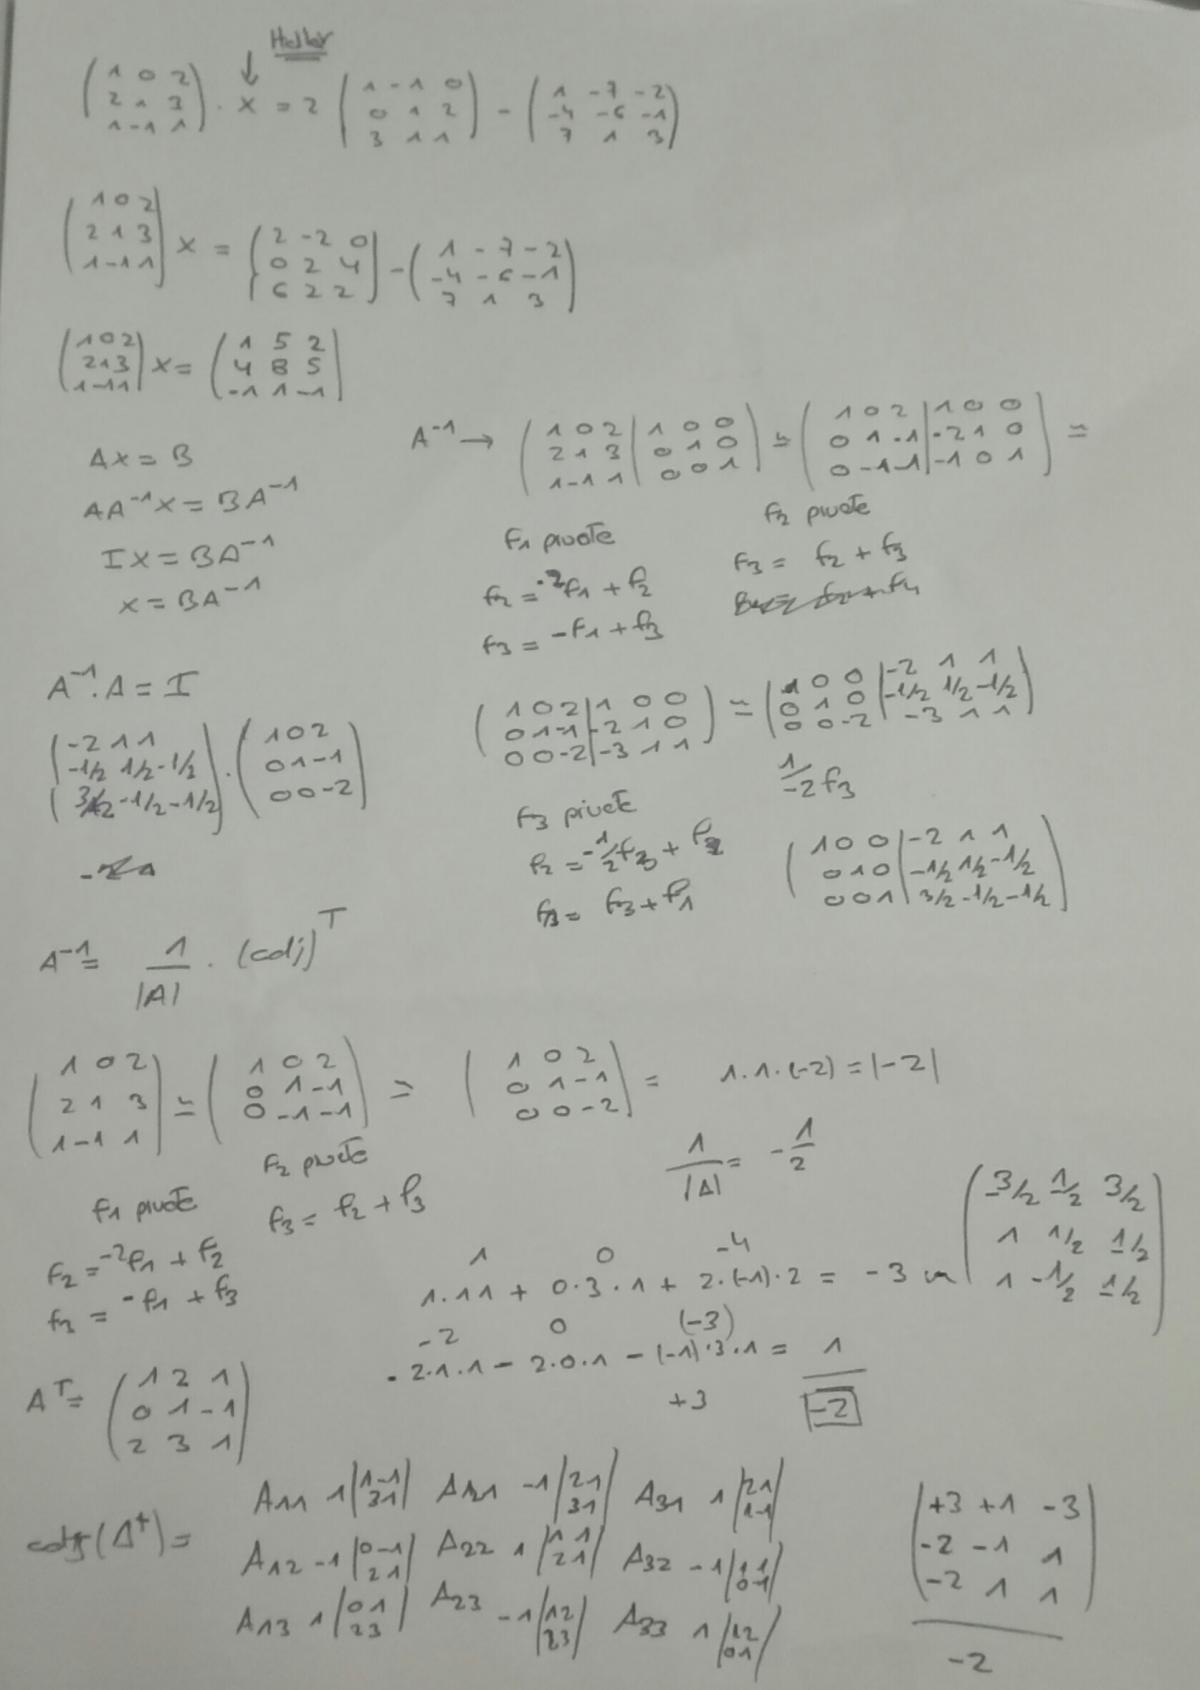 Hallar
↓
( 1 0 2 / 2 1 3 / 1 -1 1 ) · X = 2 ( 1 -1 0 / 0 1 2 / 3 1 1 ) - ( 1 -7 -2 / -4 -6 -1 / 7 1 3 )
( 1 0 2 / 2 1 3 / 1 -1 1 ) X = ( 2 -2 0 / 0 2 4 / 6 2 2 ) - ( 1 -7 -2 / -4 -6 -1 / 7 1 3 )
( 1 0 2 / 2 1 3 / 1 -1 1 ) X = ( 1 5 2 / 4 8 5 / -1 1 -1 )
AX = B
AA⁻¹X = BA⁻¹
IX = BA⁻¹
X = BA⁻¹
A⁻¹ → ( 1 0 2 | 1 0 0 / 2 1 3 | 0 1 0 / 1 -1 1 | 0 0 1 ) ≃ ( 1 0 2 | 1 0 0 / 0 1 -1 | -2 1 0 / 0 -1 -1 | -1 0 1 ) ≃
F1 pivote
f2 = -2f1 + f2
f3 = -f1 + f3
F2 pivote
F3 = f2 + f3
( 1 0 2 | 1 0 0 / 0 1 -1 | -2 1 0 / 0 0 -2 | -3 1 1 ) ≃ ( 1 0 0 | -2 1 1 / 0 1 0 | -1/2 1/2 -1/2 / 0 0 -2 | -3 1 1 )
F3 pivote
f2 = -1/2 f3 + f2
f1 = f3 + f1
1/-2 f3
( 1 0 0 | -2 1 1 / 0 1 0 | -1/2 1/2 -1/2 / 0 0 1 | 3/2 -1/2 -1/2 )
A⁻¹ · A = I
( -2 1 1 / -1/2 1/2 -1/2 / 3/2 -1/2 -1/2 ) · ( 1 0 2 / 0 1 -1 / 0 0 -2 )
A⁻¹ = 1/|A| · (adj)ᵀ
( 1 0 2 / 2 1 3 / 1 -1 1 ) ≃ ( 1 0 2 / 0 1 -1 / 0 -1 -1 ) ≃ ( 1 0 2 / 0 1 -1 / 0 0 -2 ) = 1·1·(-2) = |-2|
F1 pivote
f2 = -2f1 + f2
f3 = -f1 + f3
F2 pivote
f3 = f2 + f3
1/|A| = -1/2
1 0 -4
1·1·1 + 0·3·1 + 2·(-1)·2 = -3
-2 0 (-3)
- 2·1·1 - 2·0·1 - (-1)·3·1 = 1
+3
-2
( -3/2 -1/2 3/2 / 1 1/2 -1/2 / 1 -1/2 -1/2 )
Aᵀ = ( 1 2 1 / 0 1 -1 / 2 3 1 )
adj(Aᵗ) =
A11 1 |1 -1 / 3 1| A21 -1 |2 1 / 3 1| A31 1 |2 1 / 1 -1|
A12 -1 |0 -1 / 2 1| A22 1 |1 1 / 2 1| A32 -1 |1 1 / 0 -1|
A13 1 |0 1 / 2 3| A23 -1 |1 2 / 2 3| A33 1 |1 2 / 0 1|
( +3 +1 -3 / -2 -1 1 / -2 1 1 )
-2